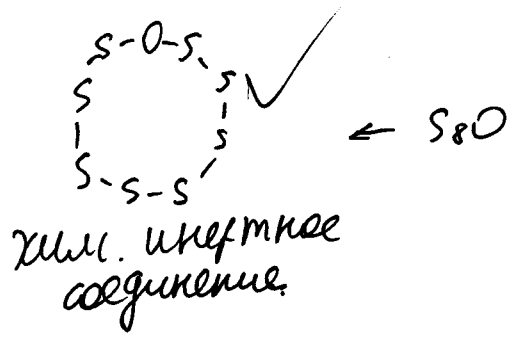 S-O-S
S S
S S
S-S-S
← S₈O
хим. инертное
соединение.